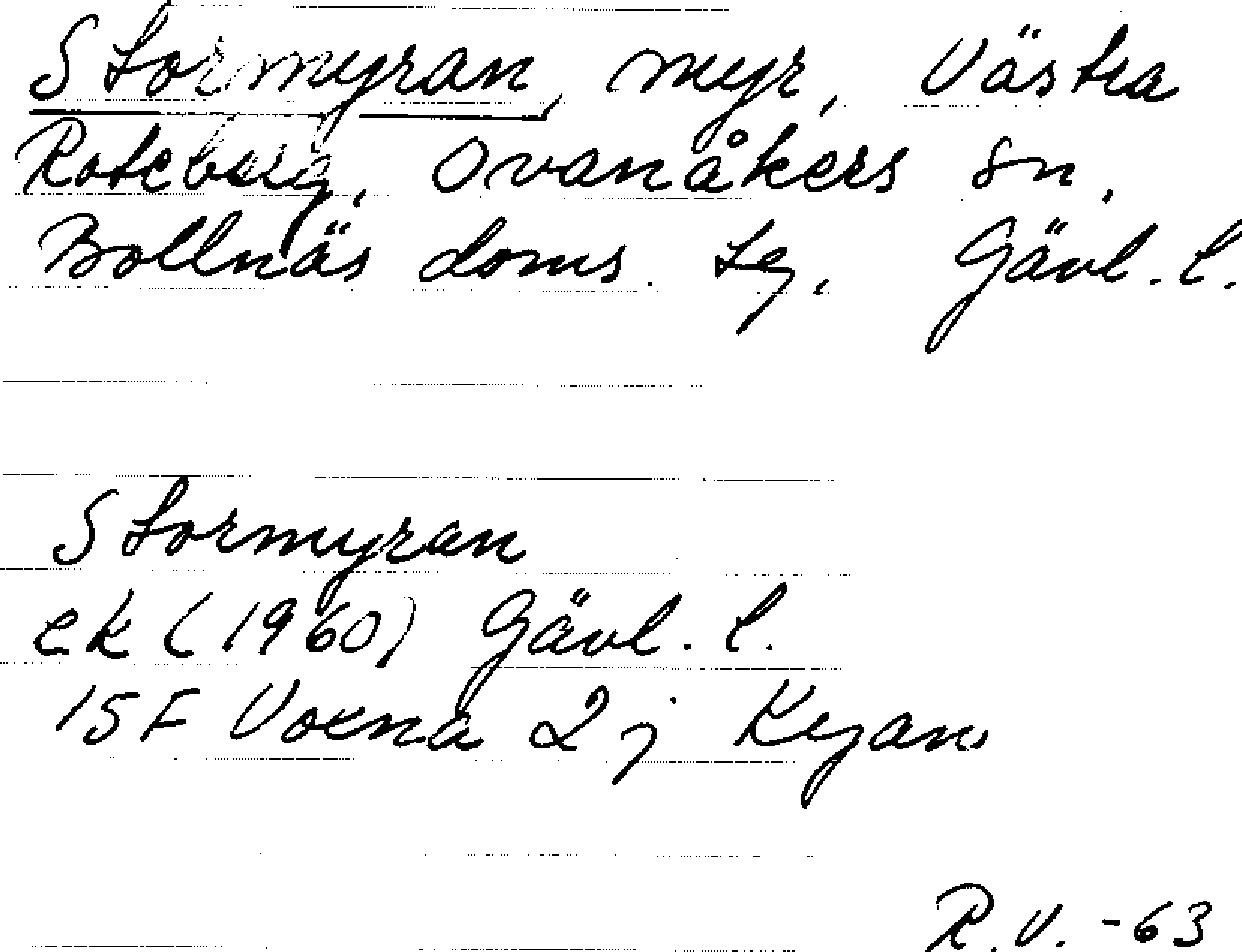 Stormyran, myr, Västra
Roteberg, Ovanåkers sn,
Bollnäs doms. tg, Gävl. l.
Stormyran
ek (1960) Gävl. l.
15F Voxna 2j
R.V. -63